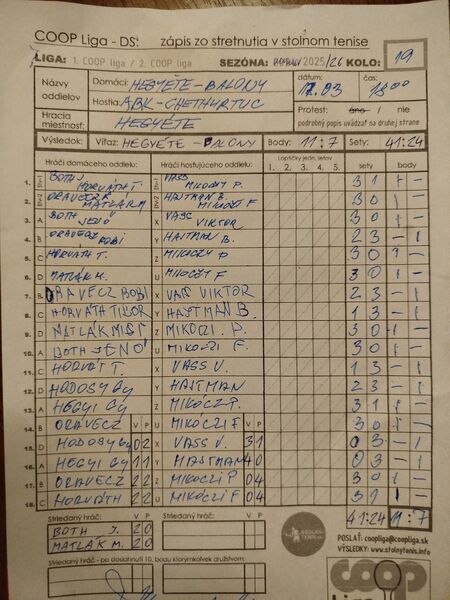 COOP Liga - DS: zápis zo stretnutia v stolnom tenise
LIGA: 1. COOP liga / 2. COOP liga SEZÓNA: 2025/26 KOLO: 19
Názvy oddielov Domáci: HEGYÉTE-BALONY dátum: 12.03 čas: 18:00
Hostia: ABK-CHETHURTUC Protest: áno / nie
Hracia miestnosť: HEGYÉTE podrobný popis uvádzať na druhej strane
Výsledok: Víťaz: HEGYÉTE-BALONY Body: 11:7 Sety: 41:24
Hráči domáceho oddielu: Hráči hosťujúceho oddielu: Loptičky jedn. setov sety body
1. 2. 3. 4. 5.
1. BOTH J HORVÁTH T. VASS MIKOCZY P. 3 1 1 -
2. ORAVECZ R MATLÁK M HAJTMAN B. MIKOCZY F 3 0 1 -
3. A BOTH JENŐ X VASS VIKTOR 3 0 1 -
4. B ORAVECZ ROBI Y HAJTMAN B. 2 3 - 1
5. C HORVÁTH T. Z MIKOCZY P 3 0 1 -
6. D MATLÁK M. U MIKOCZY F 3 0 1 -
7. B ORAVECZ ROBI X VASS VIKTOR 2 3 - 1
8. C HORVÁTH TIBOR Y HAJTMAN B. 1 3 - 1
9. D MATLÁK MISI Z MIKOCZI P. 3 0 1 -
10. A BOTH JENŐ U MIKOCZI F. 3 0 1 -
11. C HORVÁTH T. X VASS V. 1 3 - 1
12. D HODOSY GY Y HAJTMAN 2 3 - 1
13. A HEGYI GY Z MIKÓCZ P. 3 1 1 -
14. B ORAVECZ V P U MIKÓCZI F V P 3 0 1 -
15. D HODOSY GY 0 2 X VASS V. 3 1 0 3 - 1
16. A HEGYI GY 1 1 Y HAJTMAN 4 0 0 3 - 1
17. B ORAVECZ 2 2 Z MIKÓCZI P 0 4 3 0 1 -
18. C HORVÁTH 2 2 U MIKÓCZI F 0 4 3 1 1 -
Striedaný hráč: V P Striedaný hráč: V P 41:24 11:7
BOTH J. 2 0
MATLÁK M. 2 0
STOLNÝ TENIS
POSLAŤ: coopliga@coopliga.sk
VÝSLEDKY: www.stolnytenis.info
Striedaný hráč - po dosiahnutí 10. bodu ktorýmkoľvek družstvom:
coop
Liga